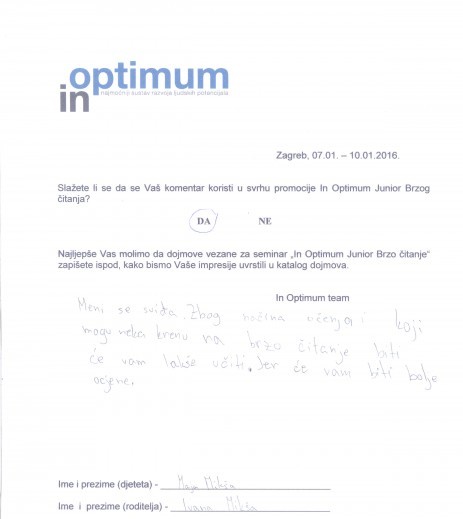 optimum
in najmoćniji sustav razvoja ljudskih potencijala
Zagreb, 07.01. – 10.01.2016.
Slažete li se da se Vaš komentar koristi u svrhu promocije In Optimum Junior Brzog
čitanja?
DA NE
Najljepše Vas molimo da dojmove vezane za seminar „In Optimum Junior Brzo čitanje“
zapišete ispod, kako bismo Vaše impresije uvrstili u katalog dojmova.
In Optimum team
Meni se sviđa. Zbog načina učenja i koji
mogu neka krenu na brzo čitanje biti
će vam lakše učiti. Jer će vam biti bolje
ocjene.
Ime i prezime (djeteta) -
Ime i prezime (roditelja) - Ivana